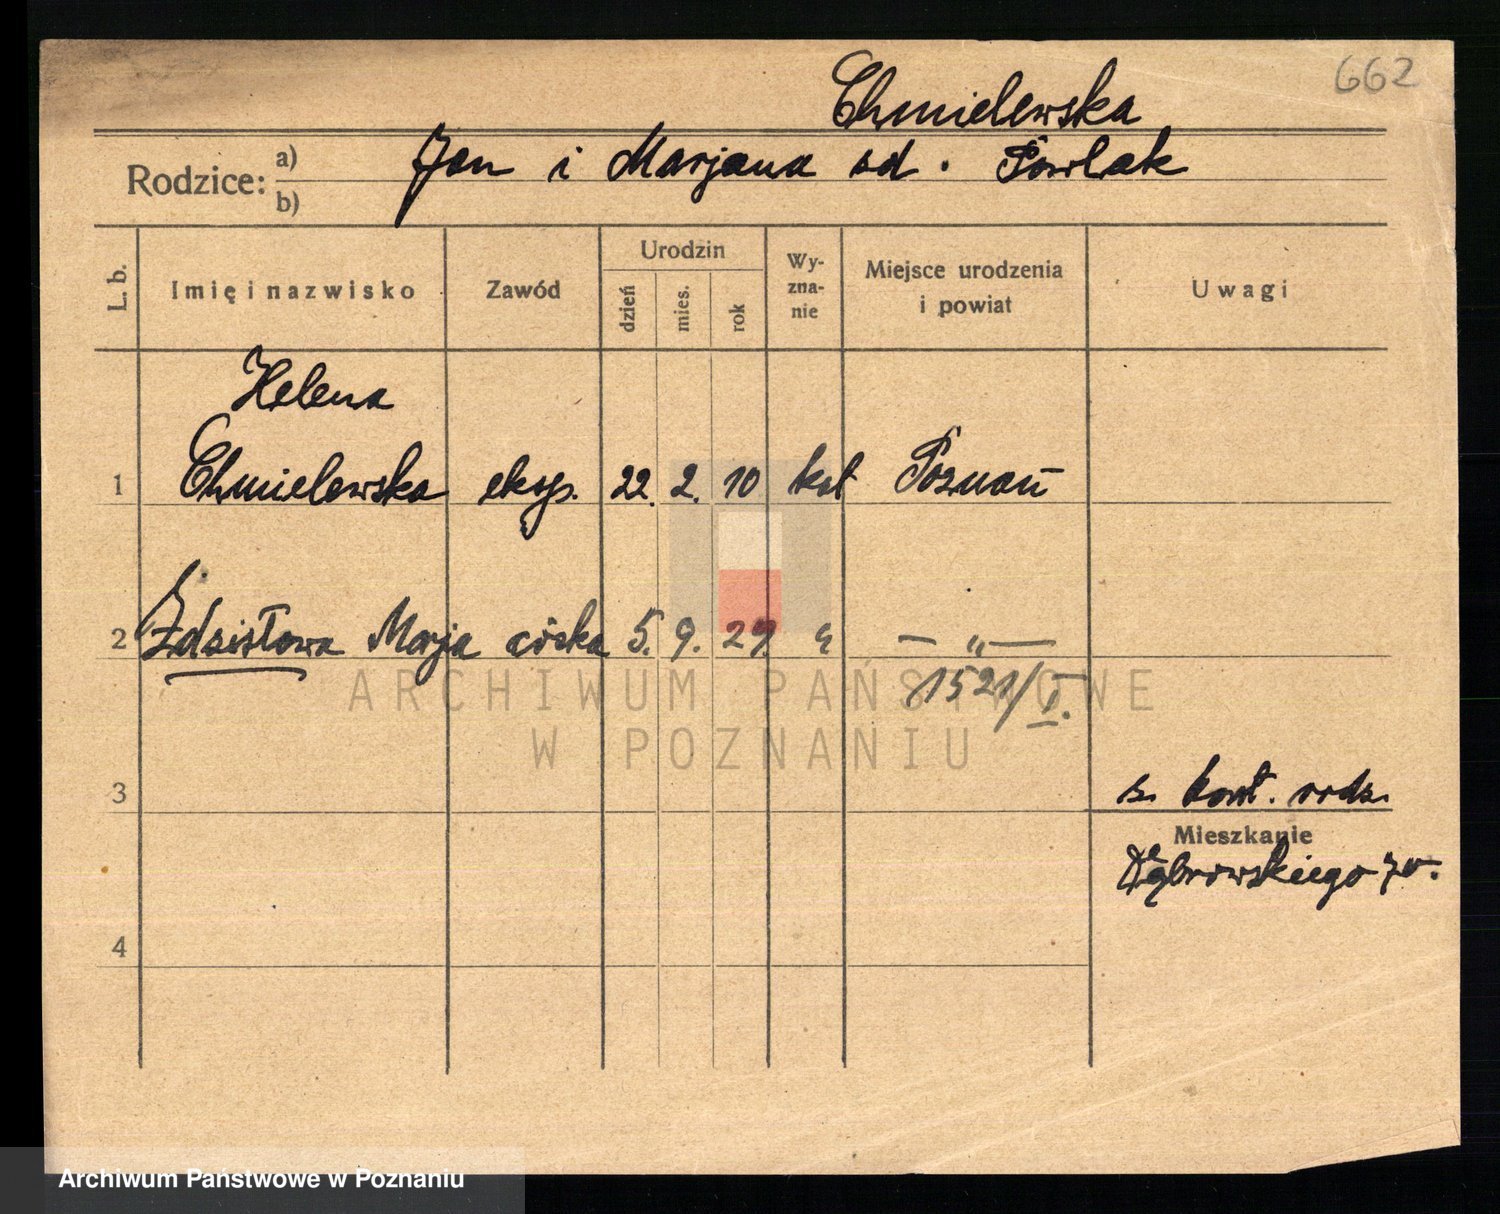 662
Chmielewska
Rodzice: a) Jan i Marjana zd. Pawlak
b)
L. b.
Imię i nazwisko
Zawód
Urodzin
dzień
mies.
rok
Wy-
zna-
nie
Miejsce urodzenia
i powiat
Uwagi
Helena
1 Chmielewska eksp. 22. 2. 10 kat Poznań
2 Zdzisława Marja córka 5. 9. 29. " — „ —
1521/I.
3
z. kart. rodz.
Mieszkanie
Dąbrowskiego 70.
4
ARCHIWUM PAŃSTWOWE
W POZNANIU
Archiwum Państwowe w Poznaniu